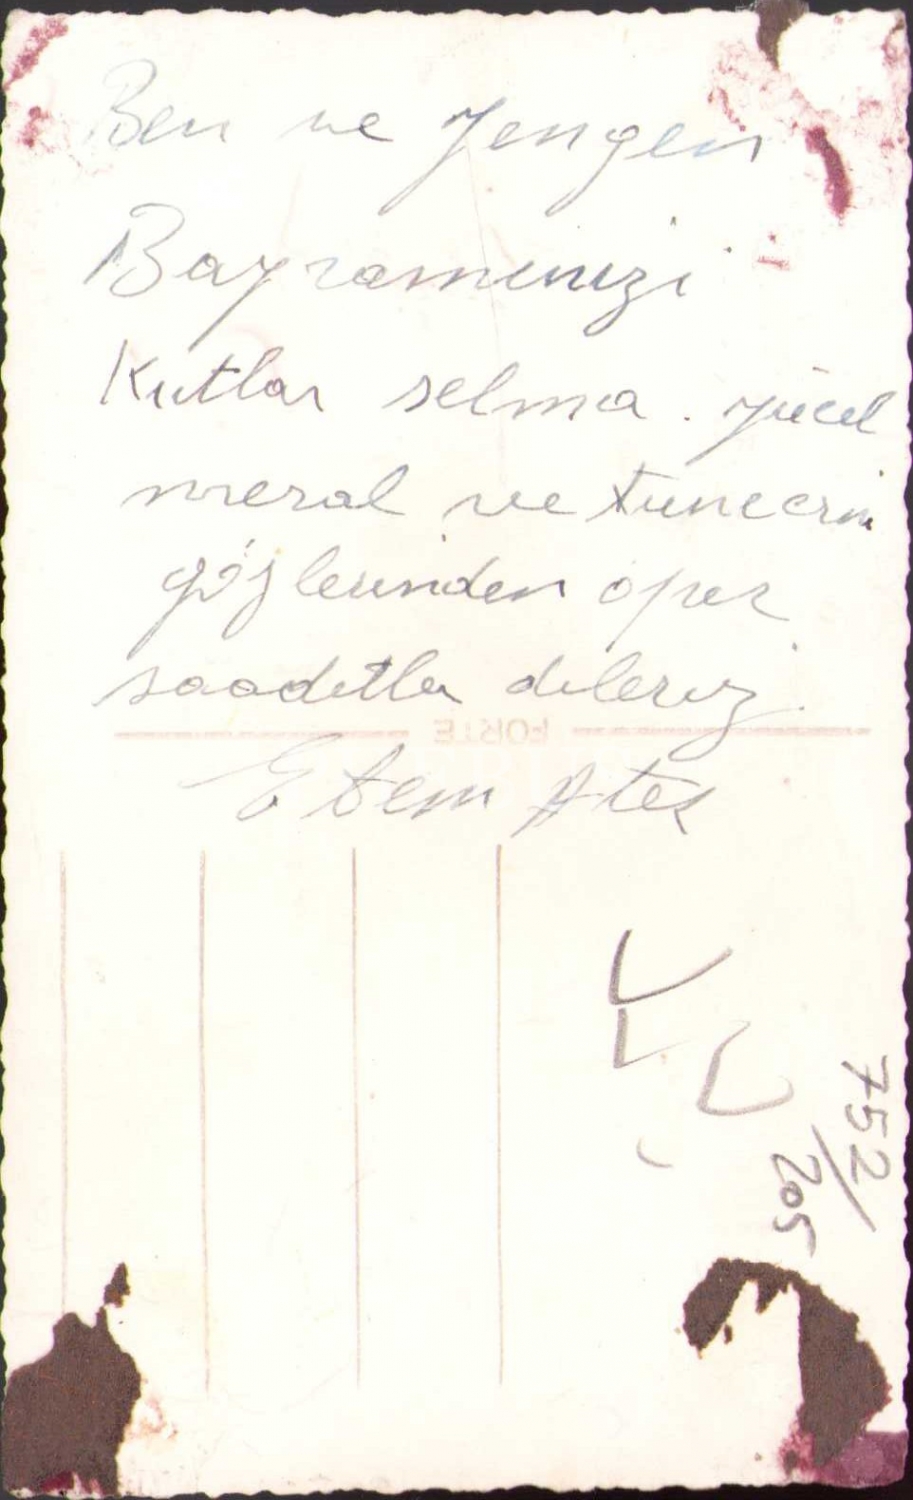 Ben ve Yengen
Bayramınızı
Kutlar selma . yücel
meral ve tuncerin
gözlerinden öper
saadetler dileriz.
FORTE
Etem Ateş
752/205